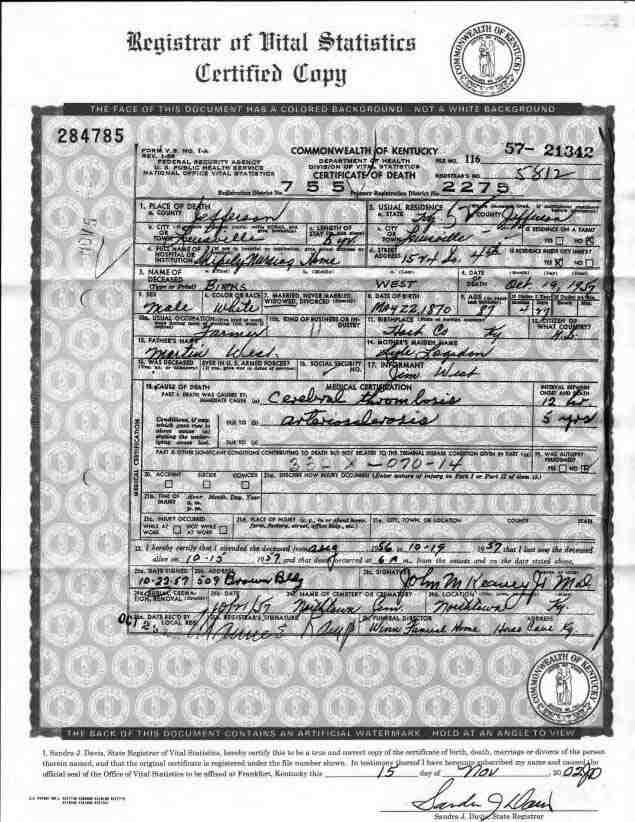 Registrar of Vital Statistics
Certified Copy
COMMONWEALTH OF KENTUCKY
THE FACE OF THIS DOCUMENT HAS A COLORED BACKGROUND - NOT A WHITE BACKGROUND
284785
FORM V.S. NO. 1-A
FEDERAL SECURITY AGENCY
U.S. PUBLIC HEALTH SERVICE
NATIONAL OFFICE VITAL STATISTICS
COMMONWEALTH OF KENTUCKY
DEPARTMENT OF HEALTH
DIVISION OF VITAL STATISTICS
CERTIFICATE OF DEATH
FILE NO. 116 57- 21342
REGISTRAR'S NO. 5812
Registration District No. 755 Primary Registration District No. 2275
1. PLACE OF DEATH
a. COUNTY Jefferson
2. USUAL RESIDENCE
a. STATE Ky b. COUNTY Jefferson
b. CITY OR TOWN Louisville
c. LENGTH OF STAY
c. CITY OR TOWN Louisville
IS RESIDENCE ON A FARM?
YES NO
d. FULL NAME OF HOSPITAL OR INSTITUTION Nursing Home
d. STREET ADDRESS 1574 So. 4th
IS RESIDENCE INSIDE CITY LIMITS?
YES NO
3. NAME OF DECEASED
(Type or Print) WEST
4. DATE OF DEATH Oct 19, 1957
5. SEX Male
6. COLOR OR RACE White
7. MARRIED, NEVER MARRIED, WIDOWED, DIVORCED
8. DATE OF BIRTH May 22 1870
9. AGE 87 4 27
10a. USUAL OCCUPATION Farmer
10b. KIND OF BUSINESS OR INDUSTRY
11. BIRTHPLACE Hart Co Ky
12. CITIZEN OF WHAT COUNTRY? U.S.
13. FATHER'S NAME Martin West
14. MOTHER'S MAIDEN NAME Logsdon
15. WAS DECEASED EVER IN U.S. ARMED FORCES?
16. SOCIAL SECURITY NO.
17. INFORMANT Jim West
18. CAUSE OF DEATH
MEDICAL CERTIFICATION
INTERVAL BETWEEN ONSET AND DEATH
PART I. DEATH WAS CAUSED BY:
IMMEDIATE CAUSE (a) Cerebral thrombosis 12 hr
DUE TO (b) arteriosclerosis 5 yrs
Conditions, if any
DUE TO (c)
PART II. OTHER SIGNIFICANT CONDITIONS CONTRIBUTING TO DEATH BUT NOT RELATED TO THE TERMINAL DISEASE CONDITION GIVEN IN PART I(a)
19. WAS AUTOPSY PERFORMED?
YES NO
070-14
20. ACCIDENT SUICIDE HOMICIDE
21a. DESCRIBE HOW INJURY OCCURRED (Enter nature of injury in Part I or Part II of item 18.)
21b. TIME OF INJURY Hour Month, Day, Year
a. m.
p. m.
21c. INJURY OCCURRED
WHILE AT WORK NOT WHILE AT WORK
21d. PLACE OF INJURY
21e. CITY, TOWN, OR LOCATION COUNTY STATE
22. I hereby certify that I attended the deceased from Aug 1956 to 10-19 1957 that I last saw the deceased
alive on 10-15 1957 and that death occurred at 6 A m., from the causes and on the date stated above.
23a. DATE SIGNED 10-22-57
23b. ADDRESS 509 Brown Bldg
23c. SIGNATURE John M
24b. DATE 10/21/57
24c. NAME OF CEMETERY OR CREMATORY Northtown Cem.
24d. LOCATION Northtown Ky.
25a. DATE REC'D BY LOCAL REG.
25b. REGISTRAR'S SIGNATURE
26. FUNERAL DIRECTOR Winn Funeral Home
ADDRESS Horse Cave Ky.
MEDICAL CERTIFICATION
COMMONWEALTH OF KENTUCKY
THE BACK OF THIS DOCUMENT CONTAINS AN ARTIFICIAL WATERMARK HOLD AT AN ANGLE TO VIEW
I, Sandra J. Davis, State Registrar of Vital Statistics, hereby certify this to be a true and correct copy of the certificate of birth, death, marriage or divorce of the person
therein named, and that the original certificate is registered under the file number shown. In testimony thereof I have hereunto subscribed my name and caused the
official seal of the Office of Vital Statistics to be affixed at Frankfort, Kentucky this 15 day of Nov, 2002
Sandra J Davis
Sandra J. Davis, State Registrar